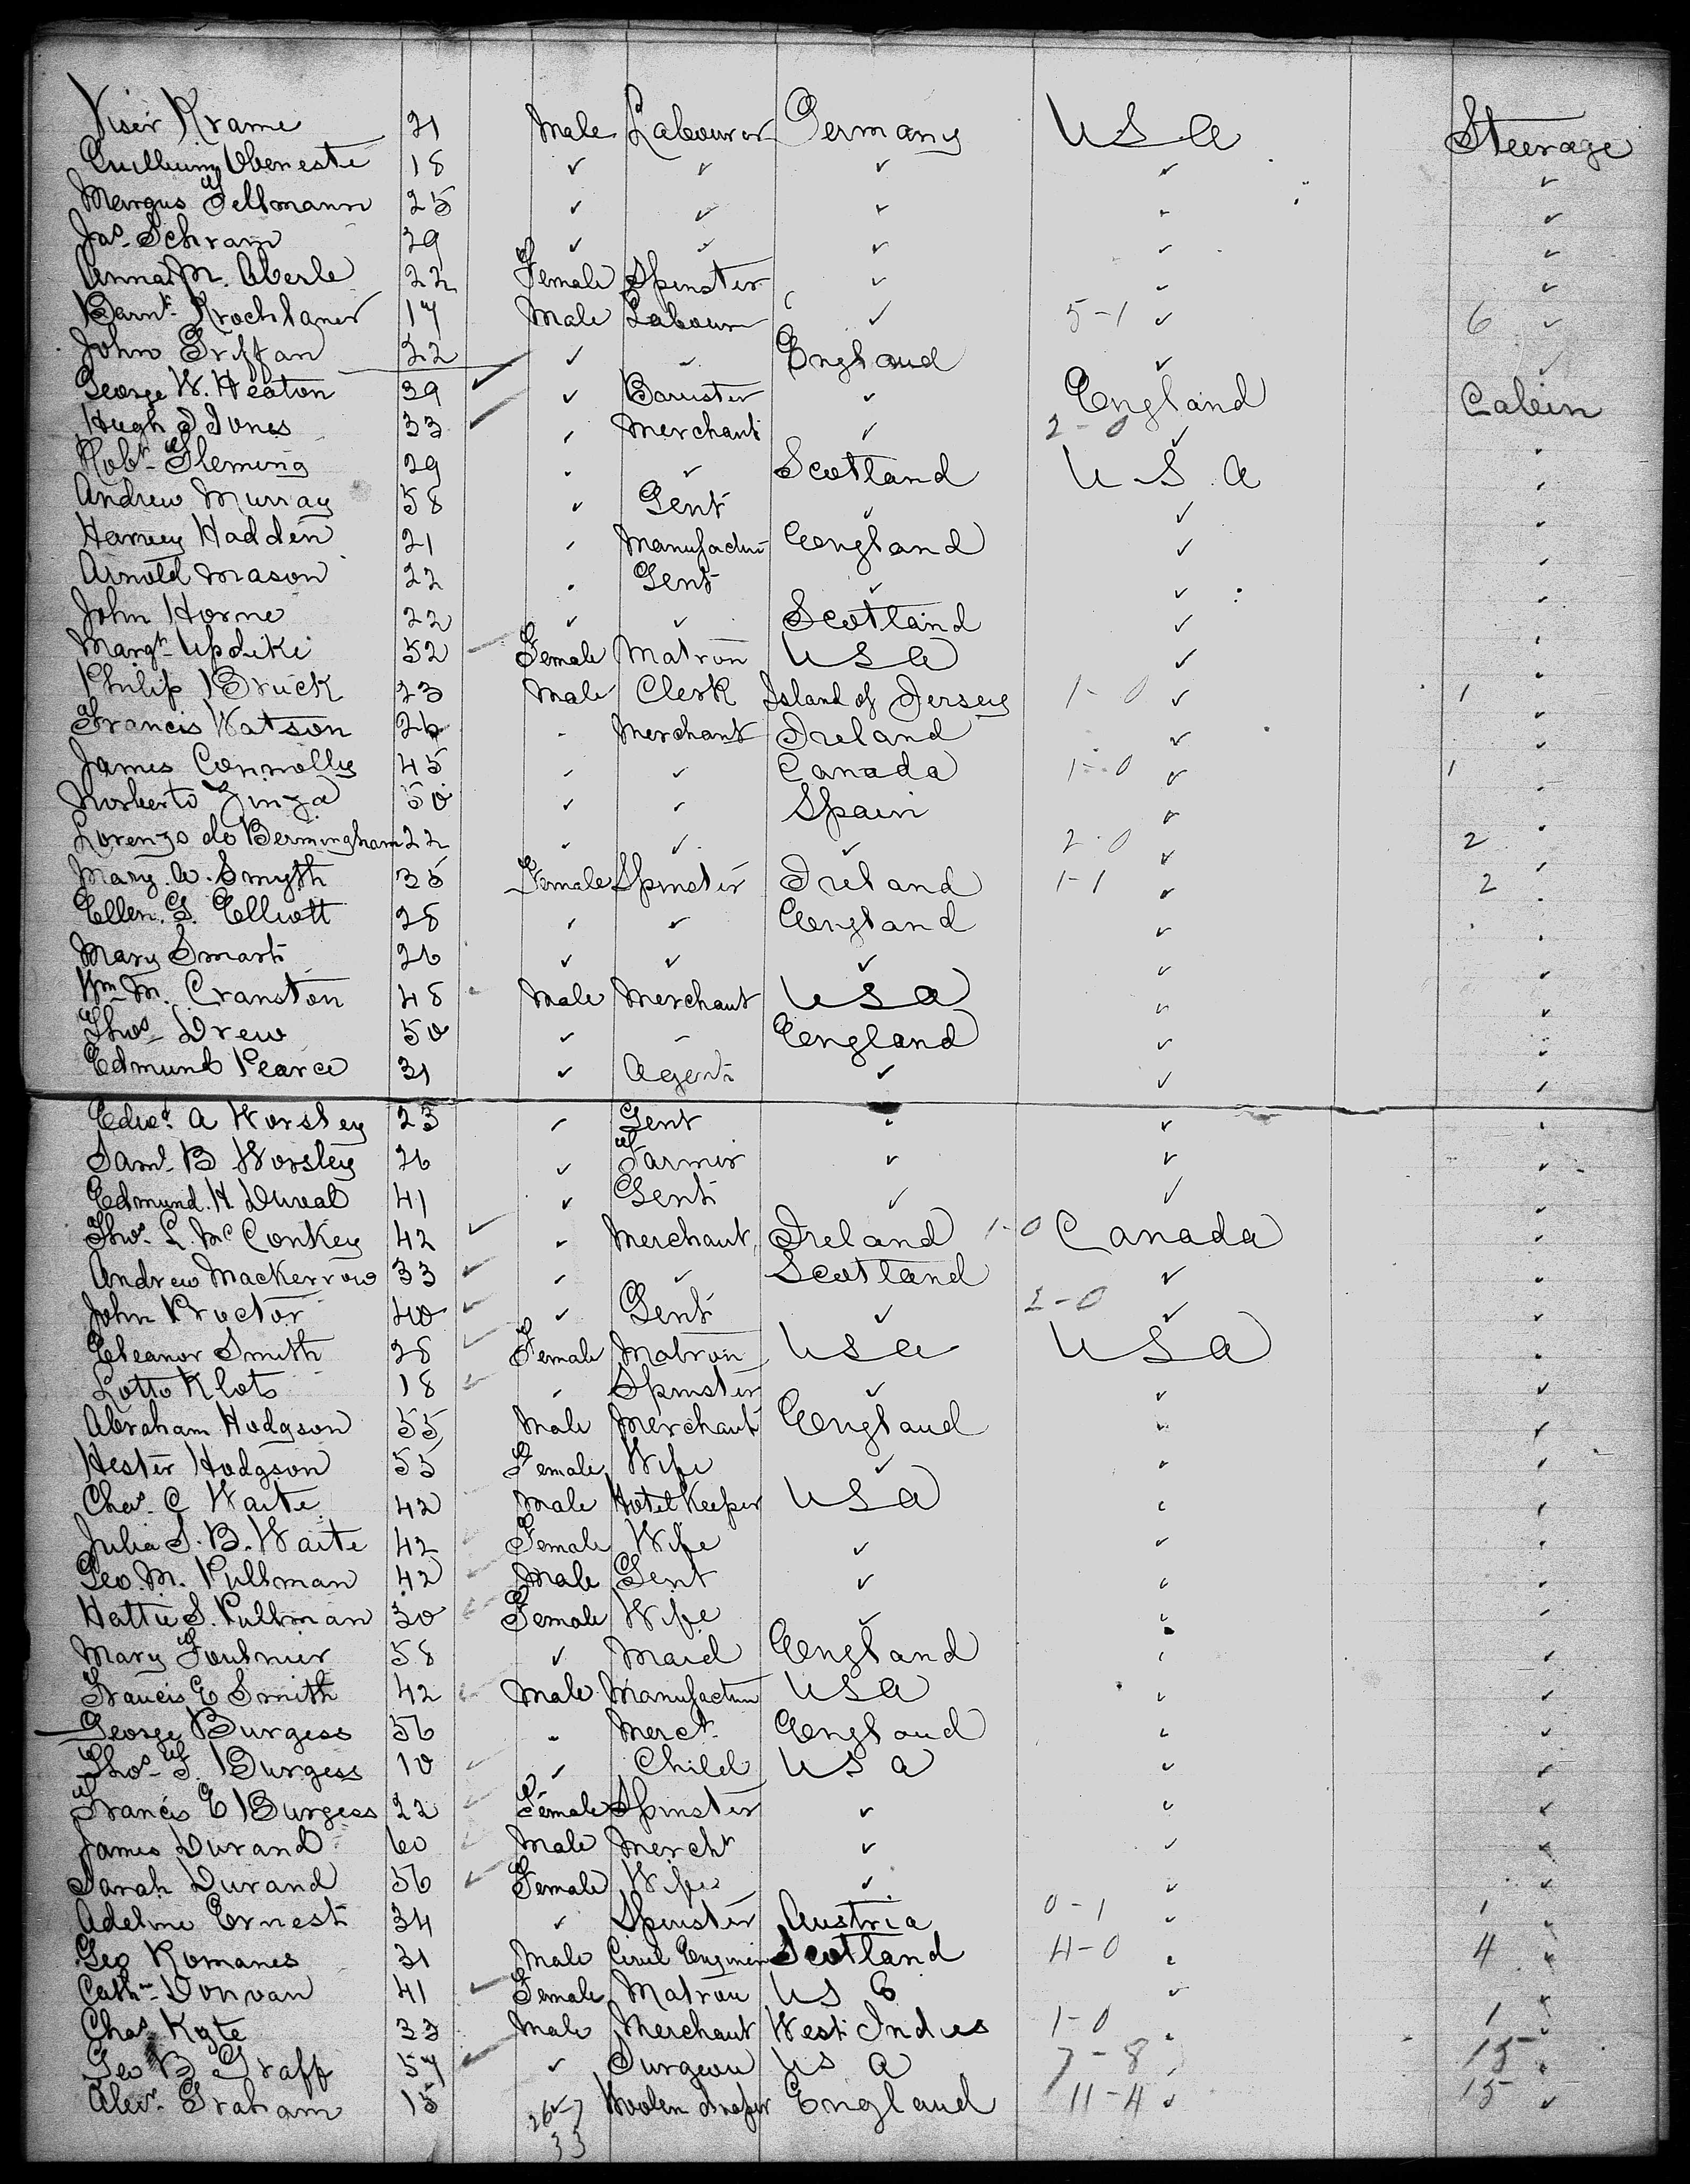 Viser Krame 21 Male Labourer Germany U S A Steerage
Guillium Oberneste 18 ✓ ✓ ✓ ✓ ✓
Margus Fellmann 25 ✓ ✓ ✓ ✓ ✓
Jas. Schram 29 ✓ ✓ ✓ ✓ ✓
Anna M. Aberle 22 Female Spinster ✓ ✓ ✓
Barnt. Krochlaner 17 Male Labour ✓ 5-1 ✓ 6 ✓
John Griffan 22 ✓ ✓ England ✓ ✓
George W. Heaton 39 ✓ ✓ Barrister ✓ England Cabin
Hugh D Jones 33 ✓ ✓ Merchant ✓ 2-0 ✓
Robt. Fleming 29 ✓ ✓ Scotland U S A ✓
Andrew Murray 58 ✓ Gent ✓ ✓ ✓
Harvey Hadden 21 ✓ Manufactur England ✓ ✓
Arnold Mason 22 ✓ Gent ✓ ✓ ✓
John Horne 22 ✓ ✓ Scotland ✓ ✓
Margt. Updike 52 ✓ Female Matron U S A ✓ ✓
Philip Bruck 23 Male Clerk Island of Jersey 1-0 ✓ 1 ✓
Francis Watson 26 ✓ Merchant Ireland ✓ ✓
James Connolly 45 ✓ ✓ Canada 1-0 ✓ 1 ✓
Norberto Zinza 50 ✓ ✓ Spain ✓ ✓
Lorenzo do Bermingham 22 ✓ ✓ ✓ 2-0 ✓ 2 ✓
Mary A. Smyth 35 Female Spinster Ireland 1-1 ✓ 2 ✓
Ellen. G. Elliott 28 ✓ ✓ England ✓ ✓
Mary Smart 26 ✓ ✓ ✓ ✓ ✓
Wm M. Cranston 48 ✓ Male Merchant U S A ✓ ✓
Thos. Drew 50 ✓ ✓ England ✓ ✓
Edmund Pearce 31 ✓ Agent ✓ ✓ ✓
Edwd. A Worsley 23 ✓ Gent ✓ ✓ ✓
Saml. B Worsley 26 ✓ Farmer ✓ ✓ ✓
Edmund. H. Duval 41 ✓ Gent ✓ ✓ ✓
Thos. L. Mc Conkey 42 ✓ ✓ Merchant Ireland 1-0 Canada ✓
Andrew Mackerrow 33 ✓ ✓ ✓ Scotland ✓ ✓
John Proctor 40 ✓ ✓ Gent ✓ 2-0 ✓ ✓
Eleanor Smith 28 ✓ Female Matron U S A U S A ✓
Lotto Klots 18 ✓ ✓ Spinster ✓ ✓ ✓
Abraham Hodgson 55 Male Merchant England ✓ ✓
Hester Hodgson 55 Female Wife ✓ ✓ ✓
Chas. C Waite 42 Male Hotel Keeper U S A ✓ ✓
Julia S. B. Waite 42 ✓ Female Wife ✓ ✓ ✓
Geo. M. Pullman 42 ✓ Male Gent ✓ ✓ ✓
Hattie S. Pullman 30 ✓ Female Wife ✓ ✓ ✓
Mary Foulnier 58 ✓ Maid England ✓ ✓
Francis E Smith 42 ✓ Male Manufactur U S A ✓ ✓
George Burgess 56 ✓ Merct. England ✓ ✓
Thos. F. Burgess 10 ✓ ✓ Child U S A ✓ ✓
Francis E Burgess 22 ✓ Female Spinster ✓ ✓ ✓
James Durand 60 ✓ Male Mercht ✓ ✓ ✓
Sarah Durand 56 ✓ Female Wife ✓ ✓ ✓
Adeline Ernest 34 ✓ Spinster Austria 0-1 ✓ 1 ✓
Geo Romanes 31 Male Civil Engineer Scotland 4-0 ✓ 4 ✓
Cathn. Donvan 41 ✓ Female Matron U S ✓ ✓
Chas. Kyte 33 Male Merchant West Indies 1-0 ✓ 1 ✓
Geo B Graff 57 ✓ ✓ Surgeon U S A 7-8 ✓ 15 ✓
Alexr. Graham 15 ✓ Woolen draper England 11-4 ✓ 15 ✓
33